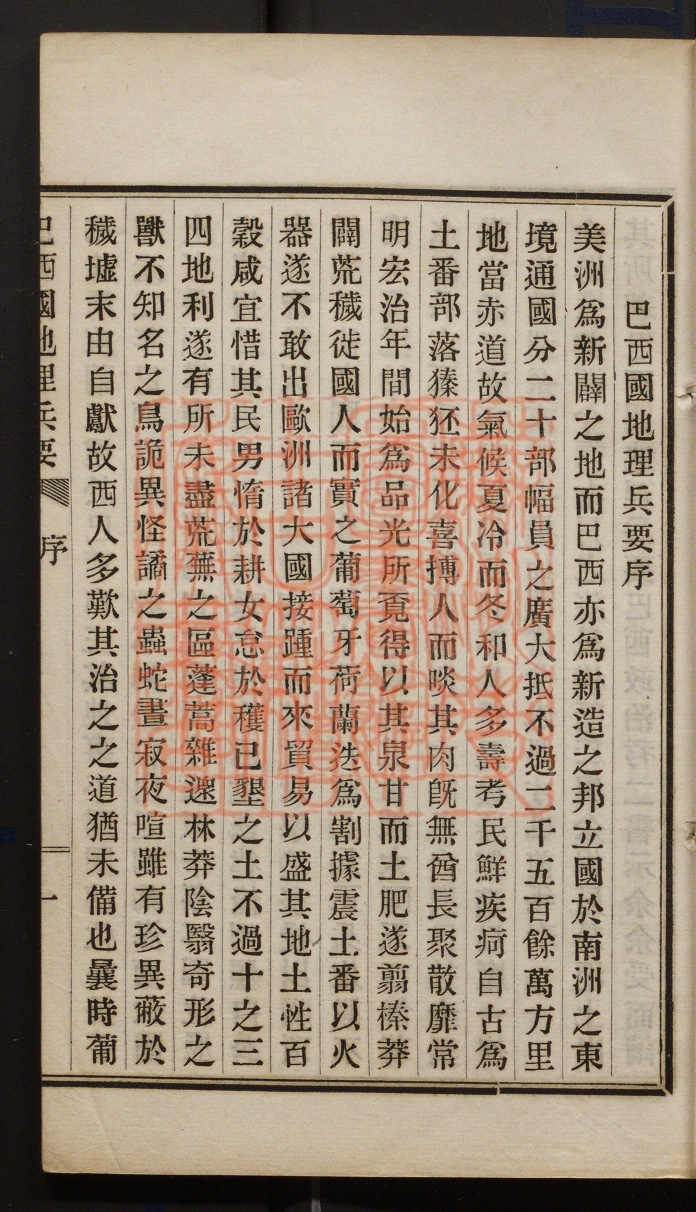 巴西國地理兵要序
美洲爲新闢之地而巴西亦爲新造之邦立國於南洲之東
境通國分二十部幅員之廣大抵不過二千五百餘萬方里
地當赤道故氣候夏冷而冬和人多壽考民鮮疾疴自古爲
土番部落獉狉未化喜搏人而啖其肉旣無酋長聚散靡常
明宏治年間始爲品光所覔得以其泉甘而土肥遂翦榛莽
闢荒穢徒國人而實之葡萄牙荷蘭迭爲割據震土番以火
器遂不敢出歐洲諸大國接踵而來貿易以盛其地土性百
穀咸宜惜其民男惰於耕女怠於穫已墾之土不過十之三
四地利遂有所未盡荒蕪之區蓬蒿雜遝林莽陰翳奇形之
獸不知名之鳥詭異怪譎之蟲蛇晝寂夜喧雖有珍異蔽於
穢墟末由自獻故西人多歎其治之之道猶未備也曩時葡
巴西國地理兵要
序
一